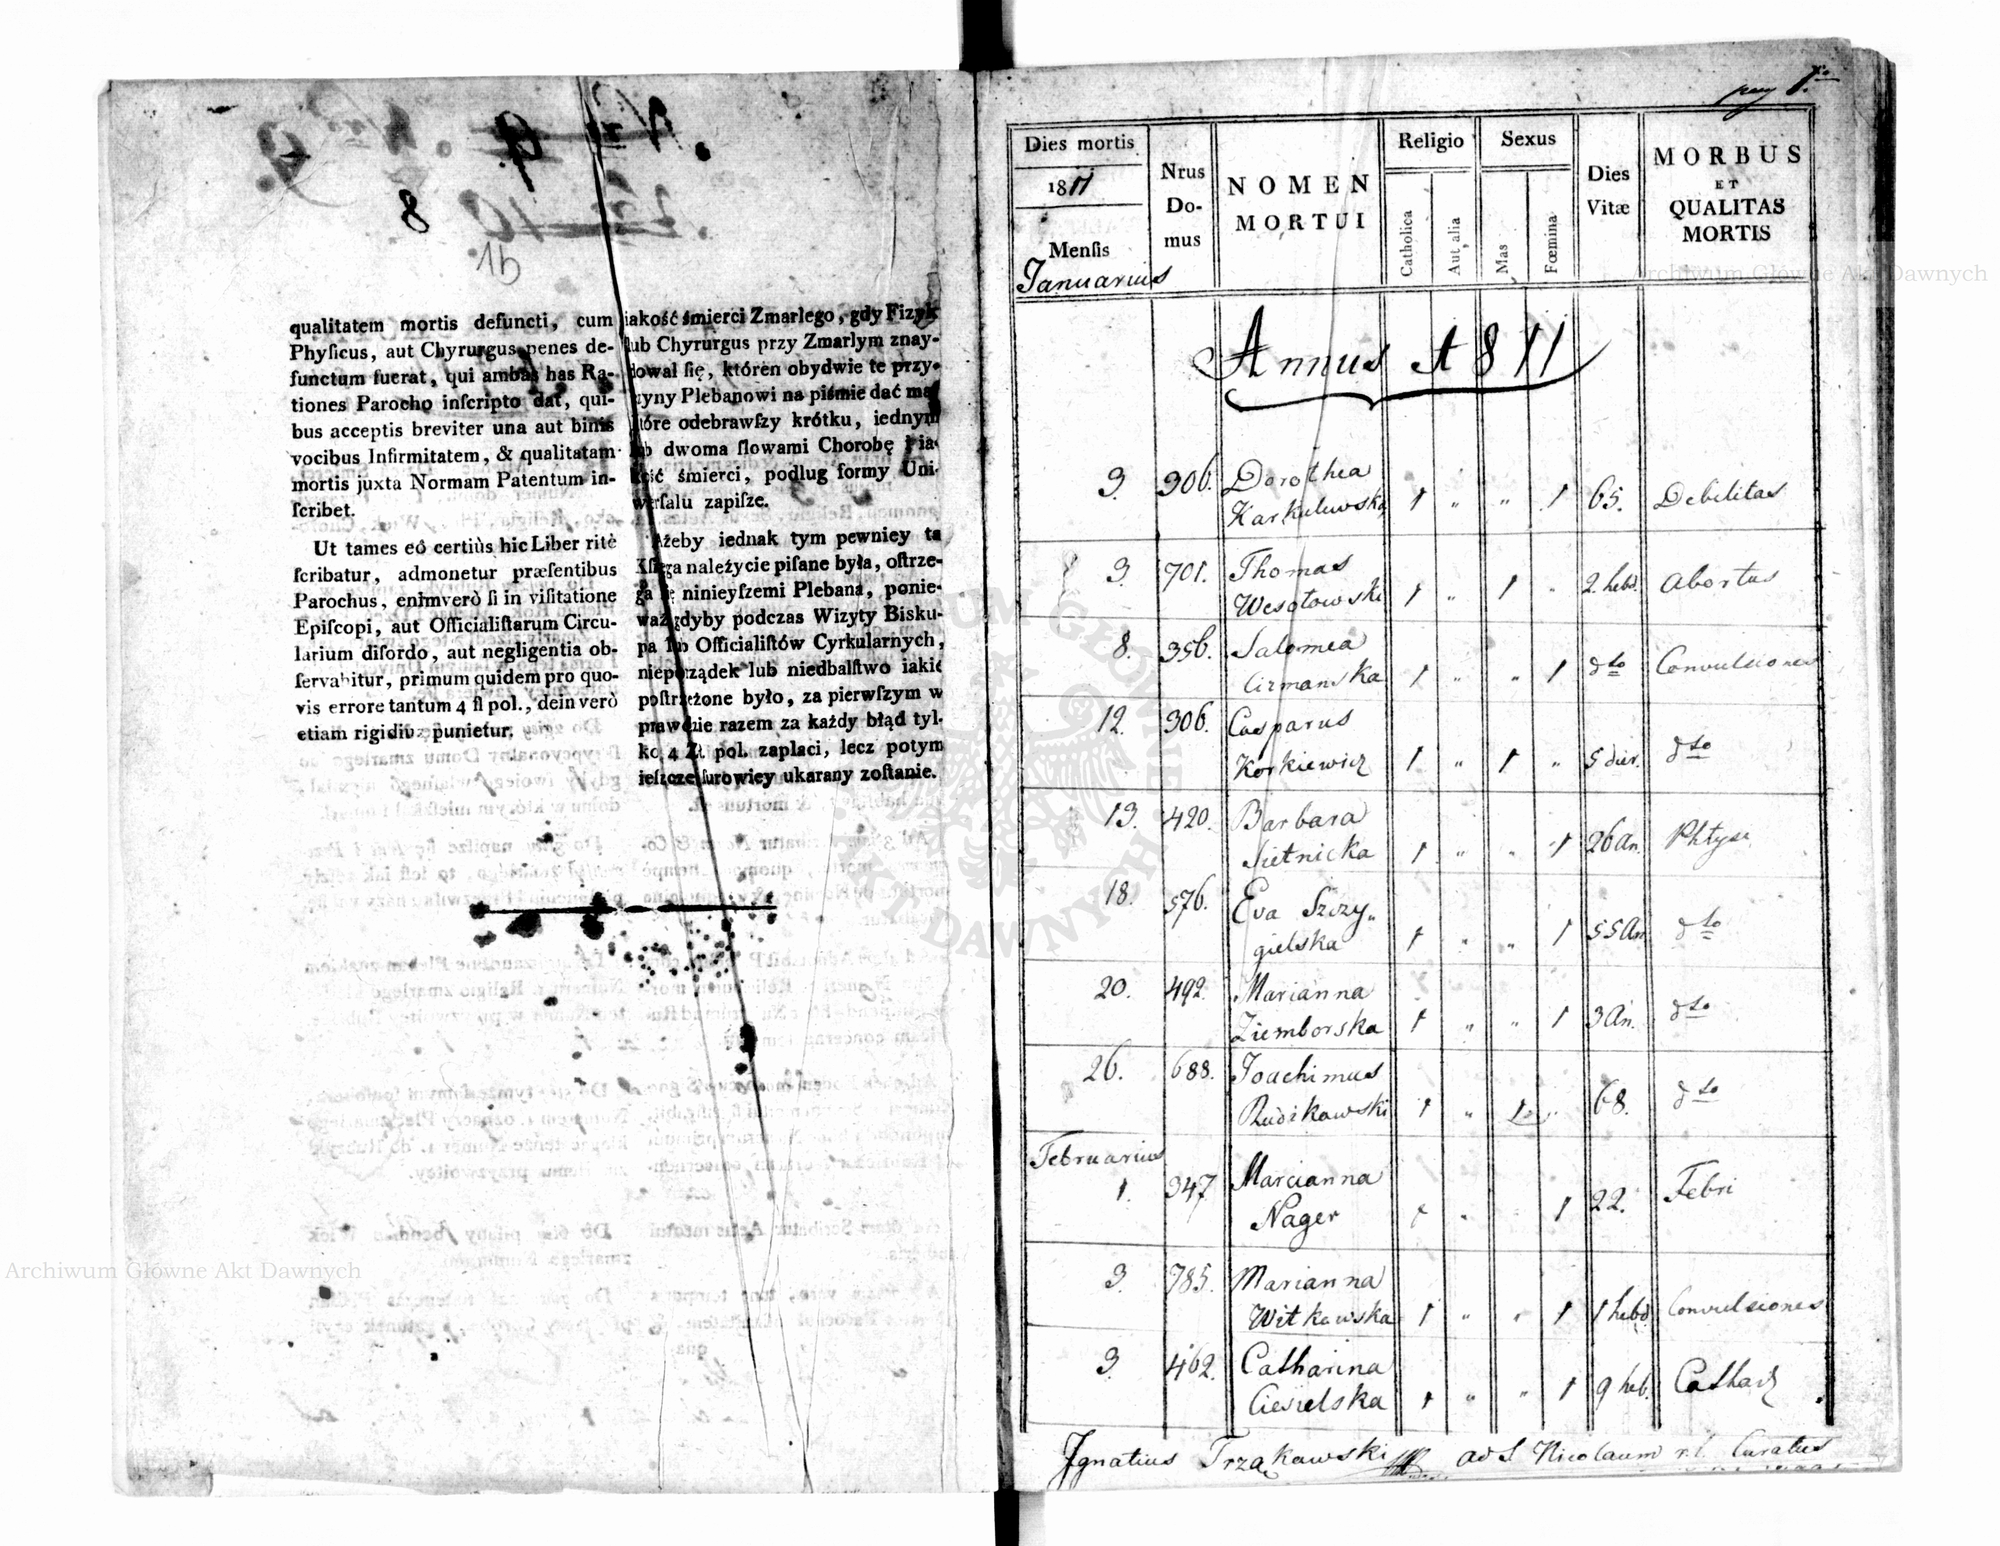 8
1b
qualitatem mortis defuncti, cum
Phyſicus, aut Chyrurgus penes de-
functum fuerat, qui ambas has Ra-
tiones Parocho inſcripto dat, qui-
bus acceptis breviter una aut binis
vocibus Infirmitatem, & qualitatam
mortis juxta Normam Patentum in-
ſcribet.
Ut tames eó certiùs hic Liber ritè
ſcribatur, admonetur præſentibus
Parochus, enimverò ſi in viſitatione
Epiſcopi, aut Officialiſtarum Circu-
larium diſordo, aut negligentia ob-
ſervabitur, primum quidem pro quo-
vis errore tantum 4 fl pol., dein verò
etiam rigidiuz punietur.
iakość śmierci Zmarlego, gdy Fizyk
lub Chyrurgus przy Zmarlym znay-
dował ſię, któren obydwie te przy-
czyny Plebanowi na piśmie dać ma
które odebrawſzy krótku, iednym
lub dwoma ſłowami Chorobę i ia-
kość śmierci, podlug formy Uni-
werſalu zapiſze.
Ażeby iednak tym pewniey ta
Xſięga należycie piſane była, oſtrze-
ga ſię ninieyſzemi Plebana, ponie-
waż gdyby podczas Wizyty Bisku-
pa lub Officialiſtów Cyrkularnych,
nieporządek lub niedbalſtwo iakie
poſtrzeżone było, za pierwſzym w
prawdzie razem za każdy błąd tyl-
ko 4 Zł pol. zaplaci, lecz potym
ieſzcze ſurowiey ukarany zoſtanie.
pag 1
Dies mortis
1811
Menſis
Januarius
Nrus
Do-
mus
NOMEN
MORTUI
Religio
Catholica
Aut alia
Sexus
Mas
Fœmina
Dies
Vitæ
MORBUS
ET
QUALITAS
MORTIS
Annus 1811
3. 306. Dorothea
Karkulewska 1 " " 1 65. Debilitas
3. 701. Thomas
Wesołowski 1 " 1 " 2 hebd. Abortus
8. 356. Salomea
Cizmanska 1 " " 1 dto Convulsiones
12. 306. Casparus
Korkiewicz 1 " 1 " 5 dier. dto
13. 420. Barbara
Sietnicka 1 " " 1 26 An. Phtysi
18. 576. Eva Szczy„
gielska 1 " " 1 55 An dto
20. 492. Marianna
Ziemborska 1 " " 1 3 An. dto
26. 688. Joachimus
Rudzkowski 1 " 1 " 68. dto
Februarius
1. 347 Marcianna
Nager 1 " 1 22. Febri
3. 785. Marianna
Witkowska 1 " " 1 1 hebd Convulsiones
3. 462. Catharina
Ciesielska 1 " " 1 9 heb.
Ignatius Trząkowski ad S. Nicolaum r. l. Curatus
Archiwum Główne Akt Dawnych
Archiwum Główne Akt Dawnych